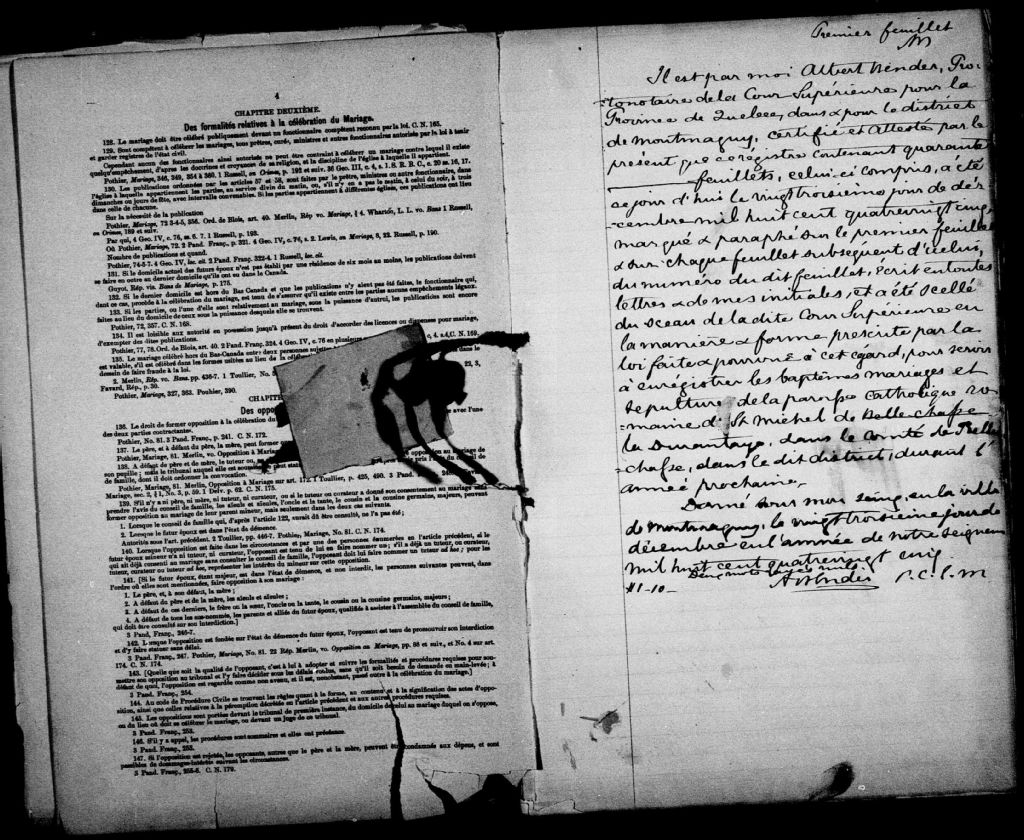 4
CHAPITRE DEUXIÈME.
Des formalités relatives à la célébration du Mariage.
128. Le mariage doit être célébré publiquement devant un fonctionnaire compétent reconnu par la loi. C. N. 165.
129. Sont compétents à célébrer les mariages, tous prêtres, curés, ministres et autres fonctionnaires autorisés par la loi à tenir
et garder registres de l'état civil.
Cependant aucun des fonctionnaires ainsi autorisés ne peut être contraint à célébrer un mariage contre lequel il existe
quelqu'empêchement, d'après les doctrines et croyances de sa religion, et la discipline de l'église à laquelle il appartient.
130. Les publications ordonnées par les articles 57 et 58, sont faites par le prêtre, ministre ou autre fonctionnaire, dans
l'église à laquelle appartiennent les parties, au service divin du matin, ou, s'il n'y en a pas le matin, à celui du soir, à trois
dimanches ou jours de fête, avec intervalle convenables. Si les parties appartiennent à différentes églises, ces publications ont lieu
dans celle de chacune.
Sur la nécessité de la publication
Pothier, Mariage, 72 3-4-5, 356. Ord. de Blois, art. 40. Merlin, Rép vo. Mariage, § 4. Wharton, L. L. vo. Bans 1 Russell,
on Crimes, 189 et suiv.
Par qui, 4 Geo. IV, c. 76, ss. 6. 7. 1 Russell, p. 193.
Où Pothier, Mariage, 72. 2 Pand Franç., p. 321. 4 Geo. IV, c. 76, s. 2. Lewis, on Marriage, 8, 22. Russell, p. 190.
Nombre de publications et quand.
Pothier, 74-5-7. 4 Geo IV, loc. cit. 2 Pand. Franç. 322-4. 1 Russell, loc. cit.
131. Si le domicile actuel des futurs époux n'est pas établi par une résidence de six mois au moins, les publications doivent
se faire en outre au dernier domicile qu'ils ont eu dans le Canada.
Guyot, Rép. vis. Bans de Mariage, p. 175.
132. Si le dernier domicile est hors du Bas Canada et que les publications n'y aient pas été faites, le fonctionnaire qui,
dans ce cas, procède à la célébration du mariage, est tenu de s'assurer qu'il existe entre les parties aucuns empêchements légaux.
133. Si les parties, ou l'une d'elles sont relativement au mariage, sous la puissance d'autrui, les publications sont encore
faites au lieu du domicile de ceux sous la puissance desquels elle se trouvent.
Pothier, 72, 357. C. N. 168.
134. Il est loisible aux autorité en possession jusqu'à présent du droit d'accorder des licences ou dispenses pour mariage,
d'exempter des dites publications.
135. Le mariage célébré hors du Bas-Canada entre deux personnes sujettes
est valable, s'il est célébré dans les formes usitées au lieu de la célébration
dessein de faire fraude à la loi.
2. Merlin, Rép. vo. Bans. pp. 436-7. 1 Toullier, No. 5
Favard, Rép., p. 30.
Pothier, Mariage, 327, 363. Pouhier, 390.
CHAPIT
Des oppos
136. Le droit de former opposition à la célébration du
des deux parties contractantes.
Pothier, No. 81. 3 Pand. Franç., p. 241. C. N. 172.
137. Le père, et à défaut du père, la mère, peut former
Pothier, Mariage, 81. Merlin, vo. Opposition à Mariage
138. A défaut de père et de mère, le tuteur ou,
son pupille; mais le tribunal auquel elle est soumise
famille, dont il doit ordonner la convocation.
Pothier, Mariage, 81. Merlin, Opposition à Mariage sur art. 172. 1 Toullier, p. 425, 490. 3 Pand.
Mariage, sec. 2, § 1, No. 3, p. 59. 1 Delv. p. 62. C. N. 175.
139. S'il n'y a ni père, ni mère, ni tuteur, ni curateur, ou si le tuteur ou curateur a donné son consentement au mariage sans
prendre l'avis du conseil de famille, les aïeuls et aïeules, l'oncle et la tante, le cousin et la cousine germains, majeurs, peuvent
former opposition au mariage de leur parent mineur, mais seulement dans les deux cas suivants.
1. Lorsque le conseil de famille qui, d'après l'article 122, aurait dû être consulté, ne l'a pas été;
2. Lorsque le futur époux est dans l'état de démence.
Autorités sous l'art. précédent. 2 Toullier, pp. 446-7. Pothier, Mariage, No. 81. C. N. 174.
140. Lorsque l'opposition est faite dans les circonstances et par une des personnes énumérées en l'article précédent, si le
futur époux mineur n'a ni tuteur, ni curateur, l'opposant est tenu de lui en faire nommer un; s'il a déjà un tuteur, ou curateur
qui ait déjà consenti au mariage sans consulter le conseil de famille, l'opposant doit lui faire nommer un tuteur ad hoc; pour les
tuteur, curateur ou tuteur ad hoc, représenter les intérêts du mineur sur cette opposition.
141. [Si le futur époux, étant majeur, est dans l'état de démence, et non interdit, les personnes suivantes peuvent, dans
l'ordre où elles sont mentionnées, faire opposition à son mariage:
1. Le père, et, à son défaut, la mère;
2. A défaut du père et de la mère, les aïeuls et aïeules;
3. A défaut de ces derniers, le frère ou la sœur, l'oncle ou la tante, le cousin ou la cousine germains, majeurs;
4. A défaut de tous les sus-nommés, les parents et alliés du futur époux, qualifiés à assister à l'assemblée du conseil de famille,
qui doit être consulté sur son interdiction.]
3 Pand, Franç., 246-7.
142. Lorsque l'opposition est fondée sur l'état de démence du futur époux, l'opposant est tenu de promouvoir son interdiction
et d'y faire statuer sans délai.
3 Pand, Franç., 247. Pothier, Mariage, No. 81. 22 Rép. Merlin, vo. Opposition au Mariage, pp 88 et suiv., et No. 4 sur art.
174. C. N. 174.
143. [Quelle que soit la qualité de l'opposant, c'est à lui à adopter et suivre les formalités et procédures requises pour soumettre
son opposition au tribunal et l'y faire décider sous les délais voulus, sans qu'il soit besoin de demande en main-levée; à
défaut de quoi, l'opposition est regardée comme non avenu, et il est, nonobstant, passé outre à la célébration du mariage.]
3 Pand. Franç., 254.
144. Au code de Procédure Civile se trouvent les règles quant à la forme, au contenu et à la signification des actes d'opposition,
ainsi que celles relatives à la péremption décrétée en l'article précédent et aux autres procédures requises.
145. Les oppositions sont portées devant le tribunal de première instance, du domicile de celui au mariage duquel on s'oppose,
ou du lieu où doit se célébrer le mariage, ou devant un juge de ce tribunal.
3 Pand. Franç., 253.
146. S'il y a appel, les procédures sont sommaires et elles ont préséance.
3 Pand. Franç., 253.
147. Si l'opposition est rejetée, les opposants, autres que le père et la mère, peuvent être condamnés aux dépens, et sont
passibles de dommages-intérêts suivant les circonstances.
3 Pand. Franç., 255-6. C. N. 179.
Premier feuillet
Il est par moi Albert Bender, Pro-
tonotaire de la Cour Supérieure pour la
Province de Quebec, dans & pour le district
de Montmagny, certifié et attesté par le
présent que ce régistre contenant quarante
feuillets, celui-ci compris, a été
ce jour d'hui le vingt troisième jour de dé-
cembre mil huit cent quatrevingt cinq,
marqué & paraphé sur le premier feuillet
& sur chaque feuillet subséquent d'icelui,
du numéro du dit feuillet, écrit en toutes
lettres & de mes initiales, et a été scellé
du sceau de la dite Cour Supérieure en
la manière & forme prescrite par la
loi faite & pourvue à cet égard, pour servir
à enrégistrer les baptêmes mariages et
sépulture de la paroisse Catholique ro-
maine d' St Michel de Belle chasse
la Durantaye, dans le Comté de Belle
-chasse, dans le dit district, durant l'
année prochaine.
Donné sous mon seing, en la ville
de Montmagny, le vingt troisième jour de
décembre en l'année de notre Seigneur
mil huit cent quatrevingt cinq.
A Bender P. C. S. M
$1-10-